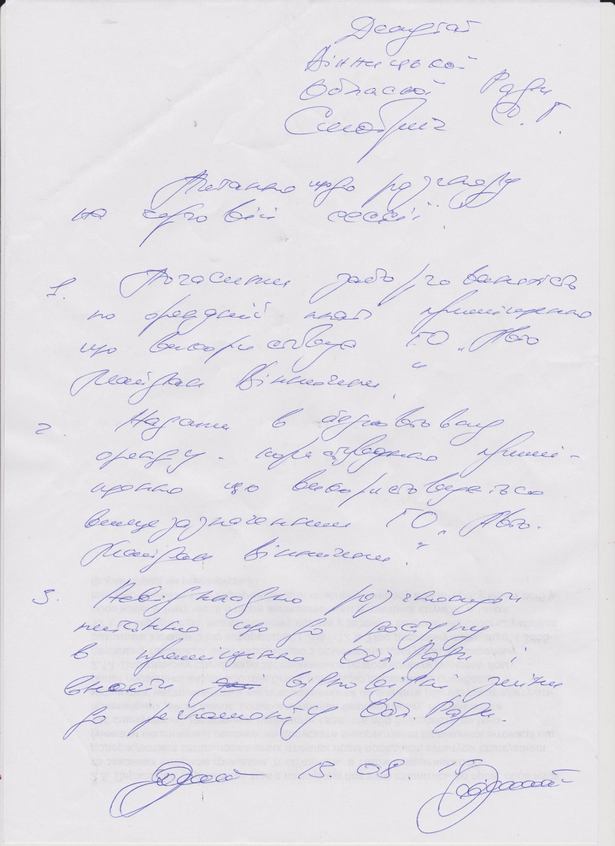 Депутат
Вінницької
Обласної Ради
С. Г.
Питання щодо розгляду
на черговій сесії.
1. Погасити заборгованість
по орендній платі приміщення
що використовує ГО „Авто
Майдан Вінниччини"
2. Надати в безкоштовну
оренду - користування примі-
щення що використовується
вищезазначеним ГО „Авто-
Майдан Вінниччини."
3. Невідкладно розглянути
питання що до доступу
в приміщення Обл Ради і
внести відповідні зміни
до регламенту Обл. Ради.
15. 08.